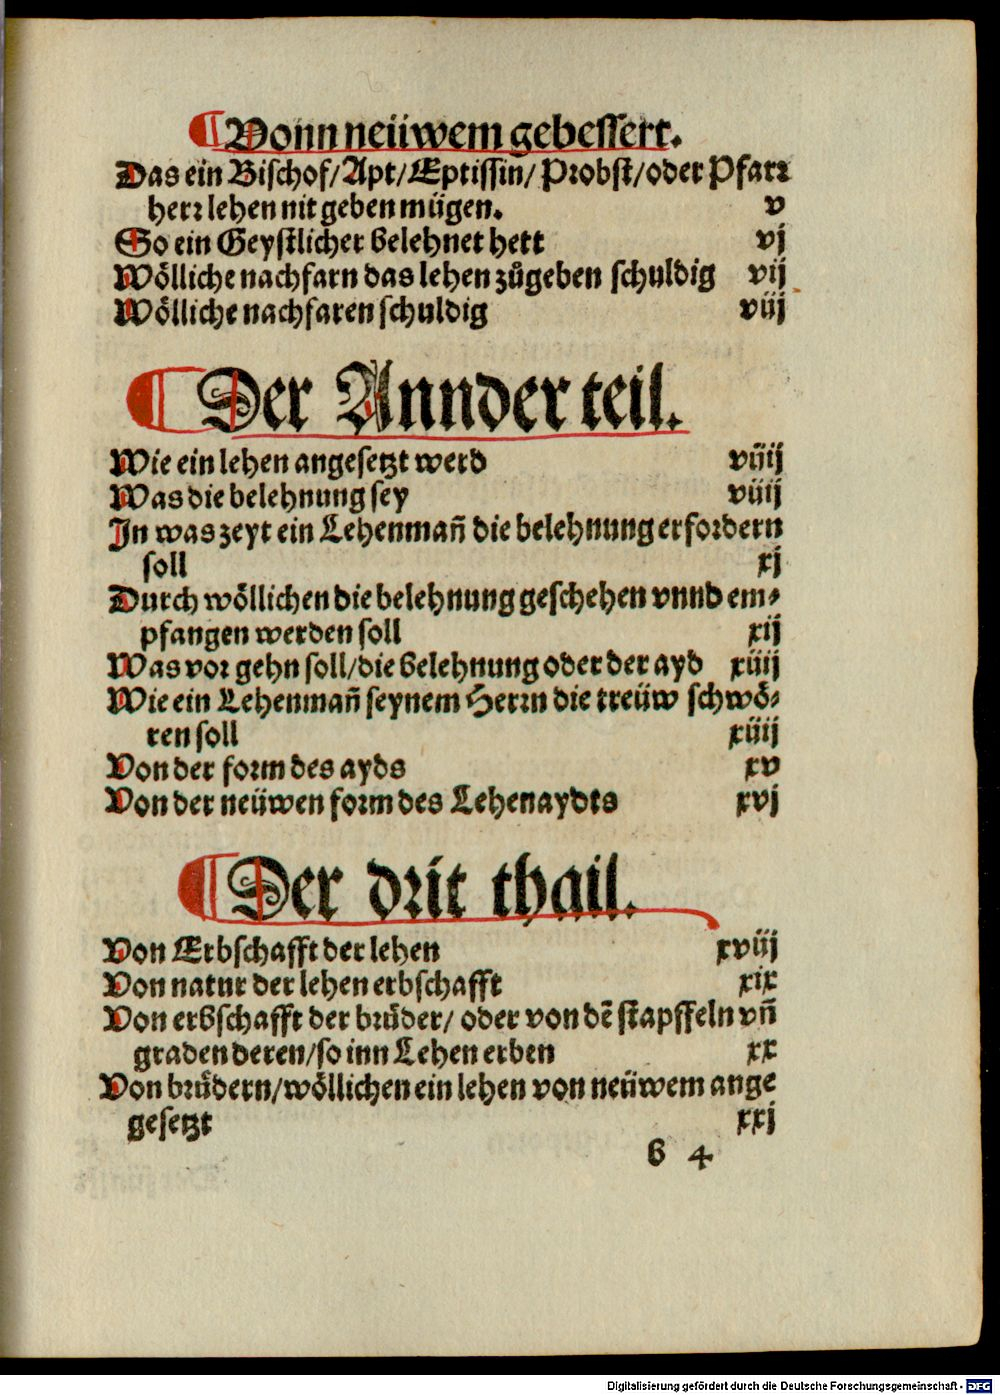 ¶ Vonn neüwem gebessert.
Das ein Bischof/Apt/Eptissin/Probst/oder Pfarr
herr lehen nit geben mügen. v
So ein Geystlicher belehnet hett vj
Wölliche nachfarn das lehen zůgeben schuldig vij
Wölliche nachfaren schuldig viij
¶ Der Annder teil.
Wie ein lehen angesetzt werd viiij
Was die belehnung sey viiij
In was zeyt ein Lehenman̄ die belehnung erfordern
soll xj
Durch wöllichen die belehnung geschehen vnnd em⸗
pfangen werden soll xij
Was vor gehn soll/die belehnung oder der ayd xiiij
Wie ein Lehenman̄ seynem Herrn die treüw schwö⸗
ren soll xiiij
Von der form des ayds xv
Von der neüwen form des Lehenaydts xvj
¶ Der drit thail.
Von Erbschafft der lehen xviij
Von natur der lehen erbschafft xix
Von erbschafft der brůder/ oder von dē stapffeln vn̄
graden deren/so inn Lehen erben xx
Von brůdern/wöllichen ein lehen von neüwem ange
gesetzt xxj
b 4
Digitalisierung gefördert durch die Deutsche Forschungsgemeinschaft - DFG